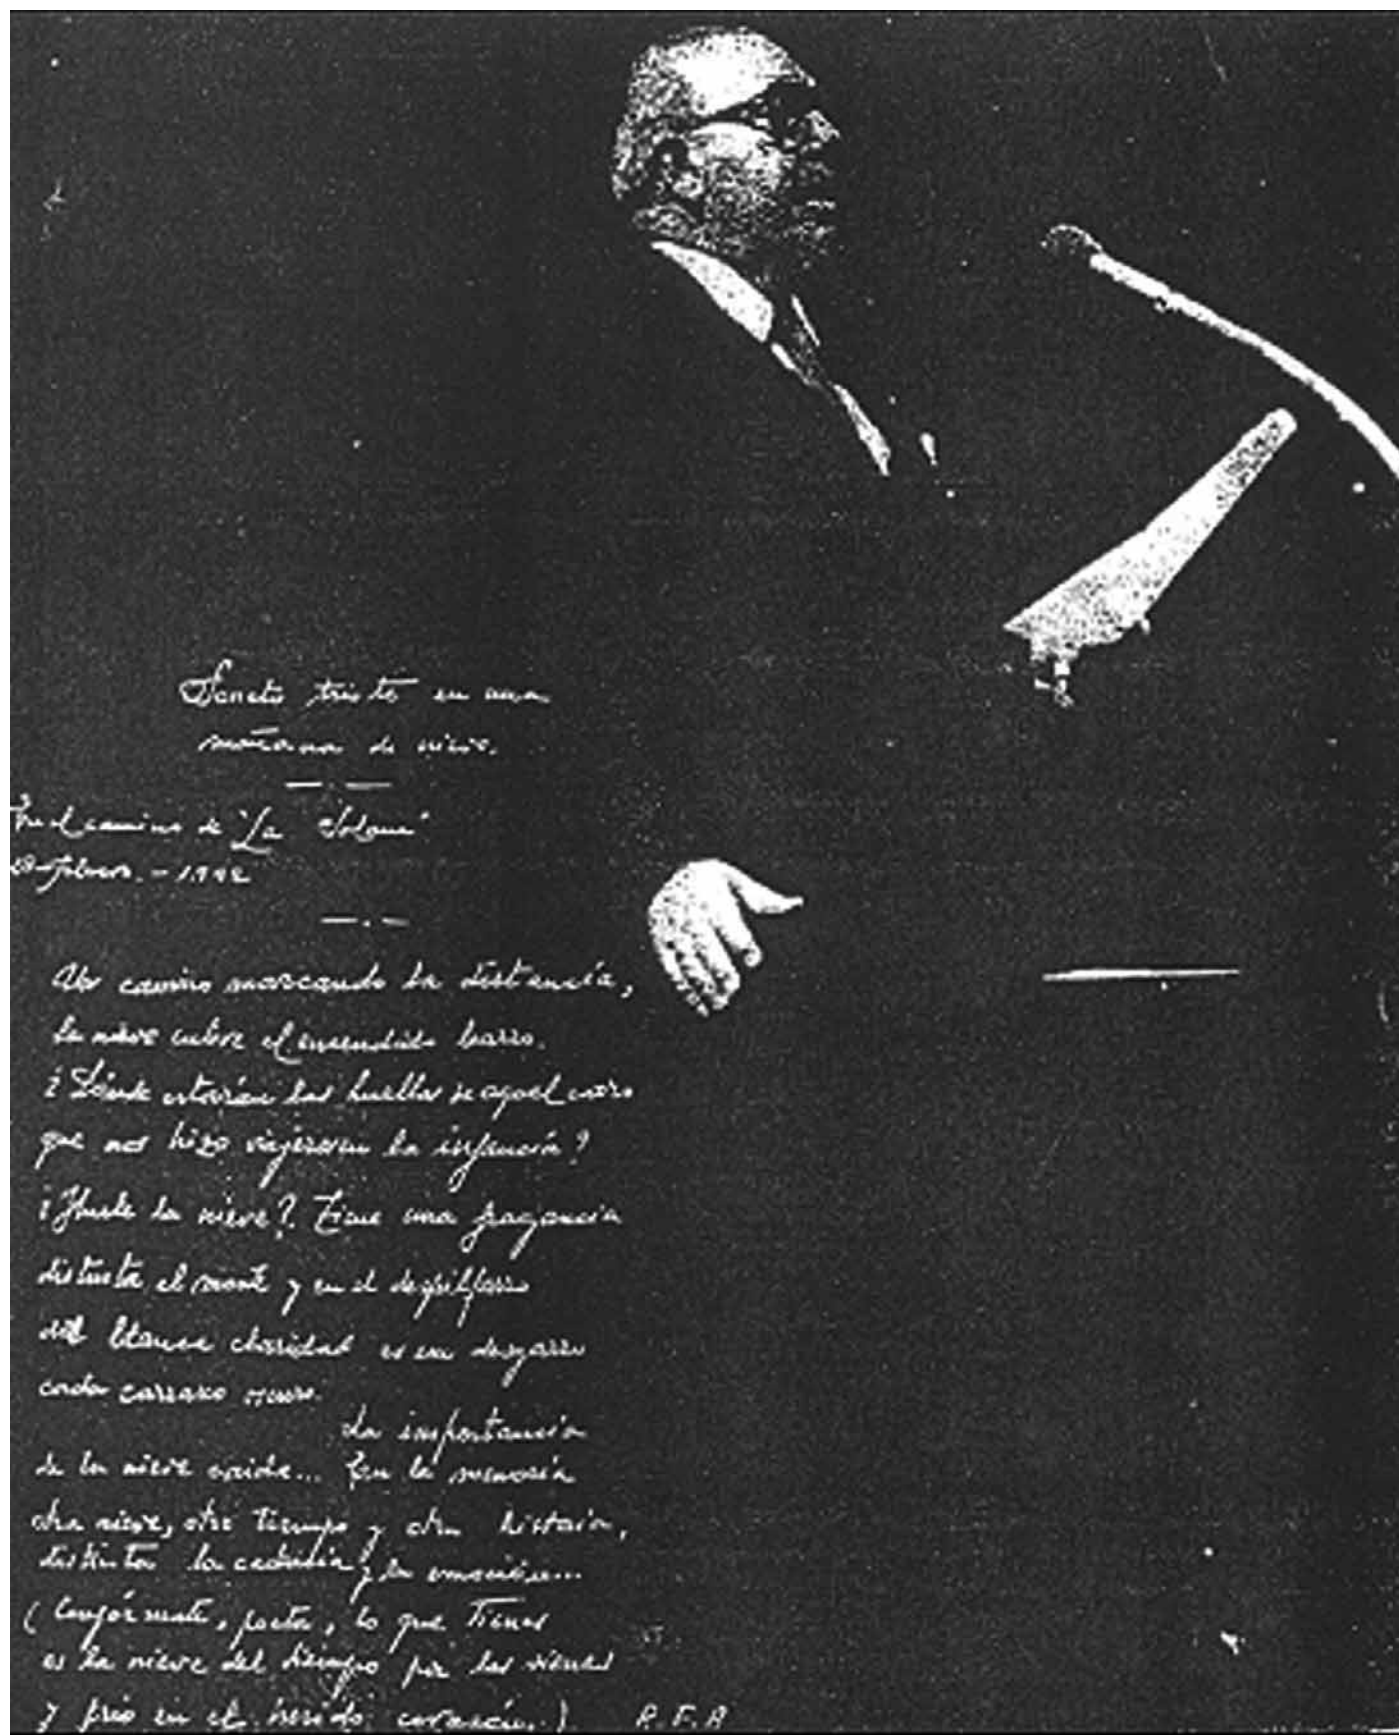 Soneto triste en una
mañana de nieve.
En el camino de "La Solana"
febrero. - 1992
Un camino marcando la distancia,
la nieve cubre el encendido barro.
¿Dónde estarán las huellas de aquel carro
que nos hizo viajeros en la infancia?
¿Huele la nieve?. Tiene una fragancia
distinta el monte y en el despilfarro
de blanca claridad es un desgarro
cada carrasco oscuro.
La importancia
de la nieve caída... En la memoria
otra nieve, otro tiempo y otra historia,
distinta la cadencia y la emoción...
(Confórmate, poeta, lo que tienes
es la nieve del tiempo por las sienes
y frío en el herido corazón.) R.F.A